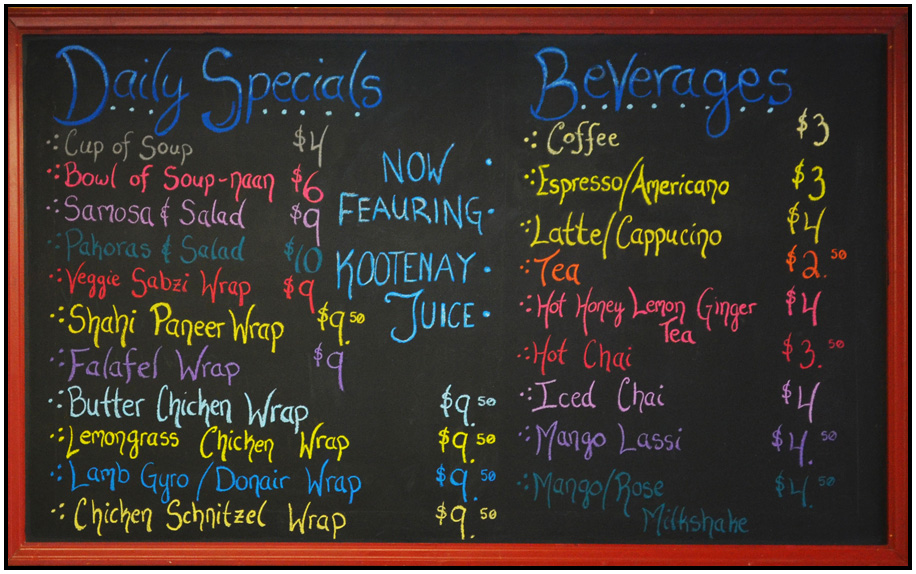 Daily Specials
Cup of Soup $4
Bowl of Soup-naan $6
Samosa & Salad $9
Pakoras & Salad $10
Veggie Sabzi Wrap $9
Shahi Paneer Wrap $9.50
Falafel Wrap $9
Butter Chicken Wrap $9.50
Lemongrass Chicken Wrap $9.50
Lamb Gyro/Donair Wrap $9.50
Chicken Schnitzel Wrap $9.50
NOW
FEAURING
KOOTENAY
JUICE
Beverages
Coffee $3
Espresso/Americano $3
Latte/Cappucino $4
Tea $2.50
Hot Honey Lemon Ginger $4
Tea
Hot Chai $3.50
Iced Chai $4
Mango Lassi $4.50
Mango/Rose $4.50
Milkshake